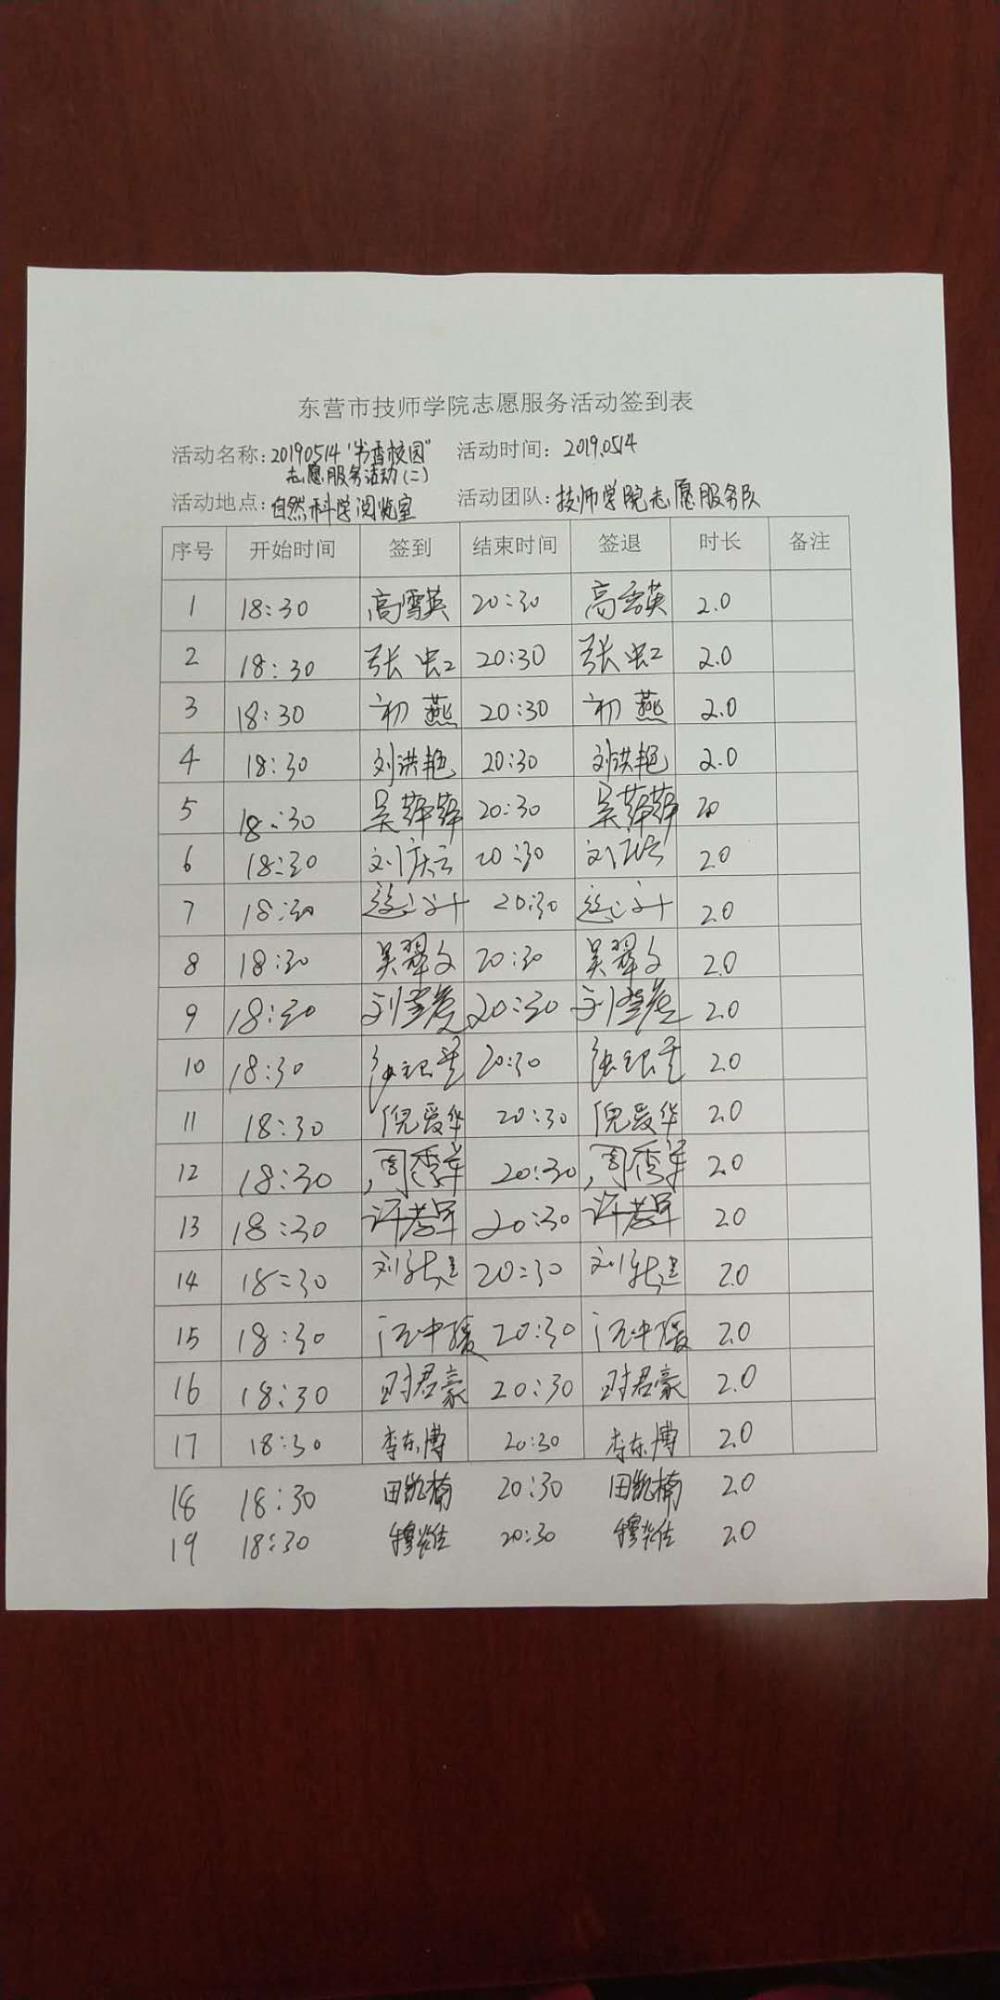 东营市技师学院志愿服务活动签到表
活动名称：20190514“书香校园” 活动时间：2019.0514
志愿服务活动（二）
活动地点：自然科学阅览室 活动团队：技师学院志愿服务队
序号 开始时间 签到 结束时间 签退 时长 备注
1 18:30 高雪英 20:30 高雪英 2.0
2 18:30 张虹 20:30 张虹 2.0
3 18:30 初燕 20:30 初燕 2.0
4 18:30 刘洪艳 20:30 刘洪艳 2.0
5 18:30 吴萍萍 20:30 吴萍萍 20
6 18:30 刘庆云 20:30 刘庆云 2.0
7 18:30 20:30 2.0
8 18:30 吴翠文 20:30 吴翠文 2.0
9 18:30 20:30 2.0
10 18:30 20:30 2.0
11 18:30 倪爱华 20:30 倪爱华 2.0
12 18:30 周秀军 20:30 周秀军 2.0
13 18:30 许孝军 20:30 许孝军 2.0
14 18:30 20:30 2.0
15 18:30 20:30 2.0
16 18:30 时君豪 20:30 时君豪 2.0
17 18:30 李东博 20:30 李东博 2.0
18 18:30 田凯楠 20:30 田凯楠 2.0
19 18:30 20:30 2.0